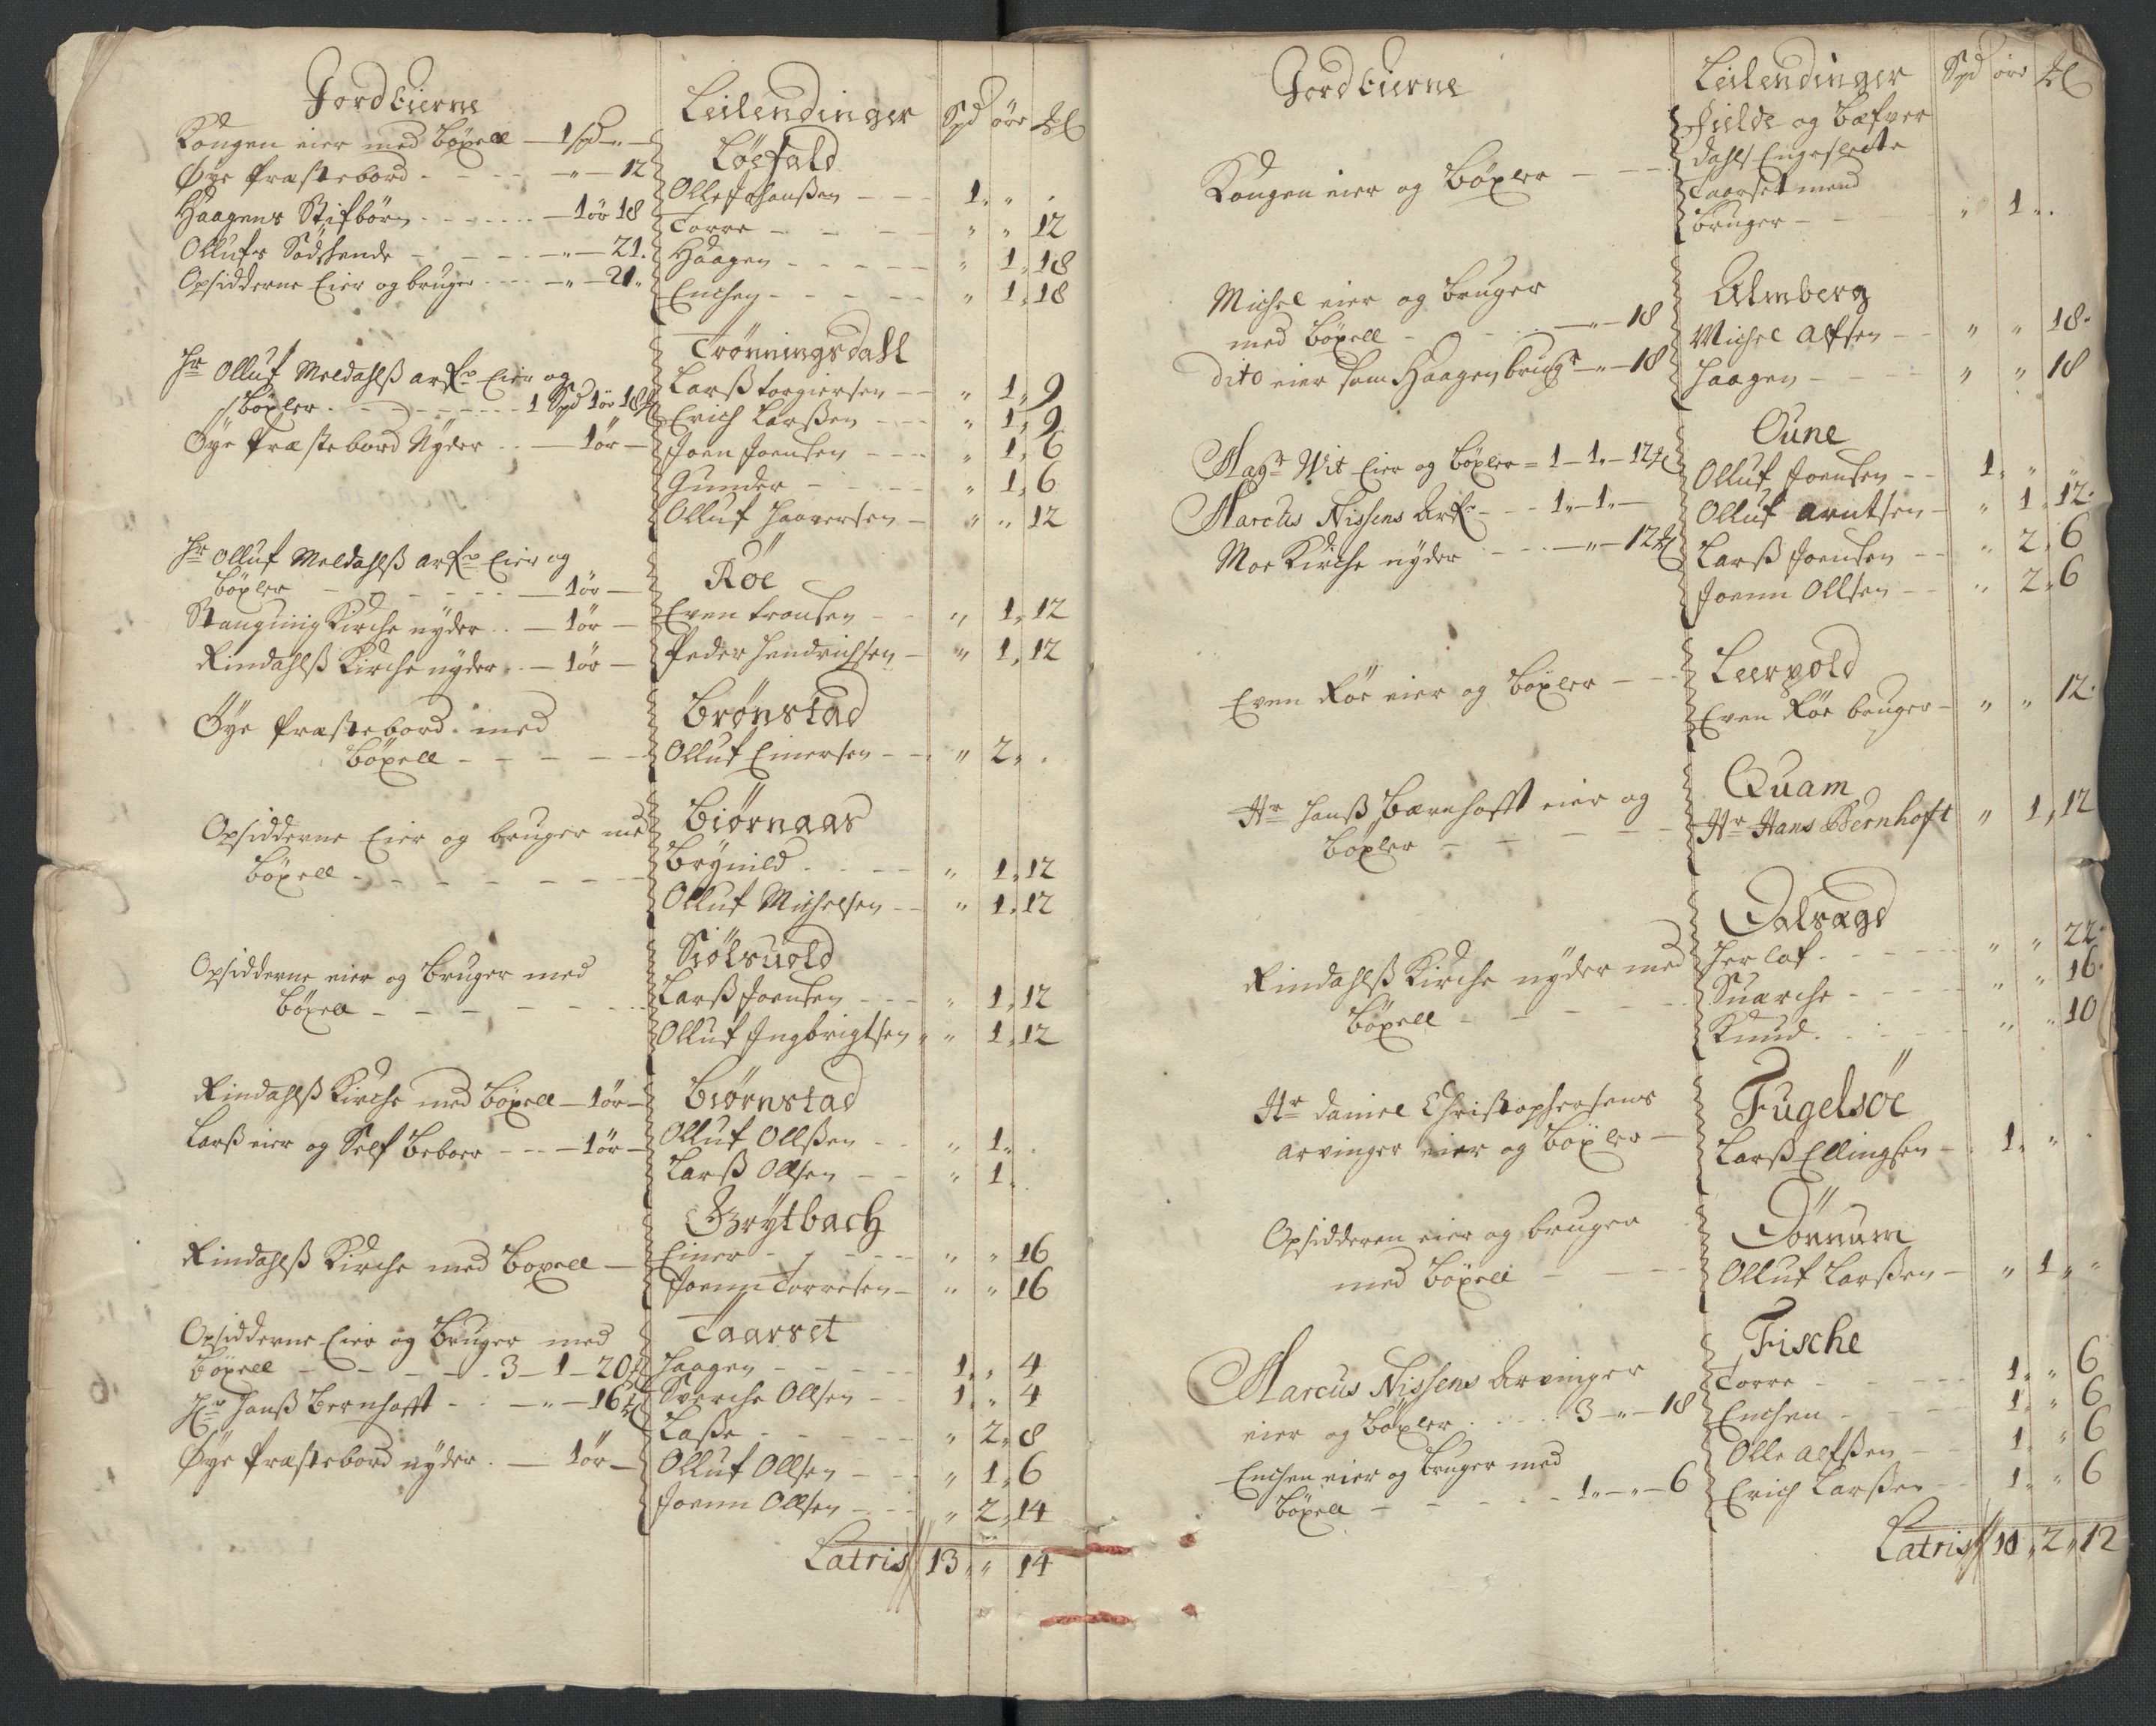 Jord Eierne
Kongen eier med böxell — 1 spd „ —
Øye Præstebord - - - „ — 12
Haagens Stifbörn - - - — 1 ör 18
Ollufs Södskende - - - „ — 21.
Opsidderne Eier og bruger - - - „ — 21„
Hr Olluf Meldahlß arf: Eier og
böxler - - - - 1 Spd 1 ör 18
Øye Præstebord Nyder - - — 1 ör —
Hr Olluf Meldahlß arf: Eier og
böxler - - - - — 1 ör —
Stangvig Kirche nyder - - — 1 ör —
Rindahlß Kirche nyder - - — 1 ör —
Øye Præstebord med
böxell - - - - -
Opsidderne Eier og bruger med
böxell - - - - -
Opsidderne eier og bruger med
böxell - - - - -
Rindahlß Kirche med böxell — 1 ör —
Larß eier og Self beboer - - — 1 ör —
Rindahlß Kirche med boxell —
Opsidderne Eier og Bruger med
böxell - - - - 3 — 1 — 20
Hr Hanß Bernhofft - - - „ — 16
Øye Præstebord nyder - — 1 ör —
Leilendinger Spd öre
Löefald
Olle Johanßen - - - 1 „ „ .
Torre - - - - „ „ 12
Haagen - - - - „ 1 „ 18
Enchen - - - - „ 1 „ 18
Trönningsdall
Larß torgiersen - - „ 1 „ 9
Erich Larßen - - - „ 1 „ 9
Joen Joensen - - - „ 1 „ 6
Gunder - - - - „ 1 „ 6
Olluf Haaversen - „ „ 12
Röe
Even tronsen - - „ 1 „ 12
Peder Hendrichsen - „ 1 „ 12
Brönstad
Olluf Einersen - - „ 2 „ .
Biörnaas
Brynild - - - - „ 1 „ 12
Olluf Michelsen - - „ 1 „ 12
Siölsuold
Larß Joensen - - - „ 1 „ 12
Olluf Ingbrigtsen „ „ 1 „ 12
Biörnstad
Olluf Ollßen - - - „ 1 „ .
Larß Ollsen - - - „ 1 .
Grÿtbach
Einer - - - - „ „ 16
Joenn Torresen - „ „ 16
Taarset
Haagen - - - - 1 „ „ 4
Sverche Ollsen - 1 „ „ 4
Laße - - - - „ 2 „ 8
Olluf Ollsen - - - „ 1 „ 6
Joenn Ollsen - - - „ 2 „ 14
Latris 13 „ „ 14
Jord Eierne
Kongen eier og Böxler - - -
Michel eier og bruger
med böxell - - - - „ — 18
dito eier som Haagen brugr — „ — 18
Magr Wit Eier og böxler = 1 — 1 „ — 12
Marcus Nissens Arf: - - - 1 „ — 1 „ —
Moe Kirche nyder - - - — „ — 12
Even Röe eier og böxler - - -
Hr Hanß Bærnhofft eier og
böxler - - - -
Rindahlß Kirche nyder med
böxell - - - -
Hr Daniel Christophersens
arvinger eier og böxler —
Opsidderen eier og bruger
med böxell - - -
Marcus Nissens Arvinger
eier og böxler - - - - 3 — „ — 18
Enchen eier og bruger med
böxell - - - - 1 „ — „ — 6
Leilendinger Spd öre
Fielde og Bæfver
dahls Engeslecte
Taarset mend
bruger - - „ 1 „ .
Almberg
Michel Alfsen - - „ „ 18.
Haagen - - - - „ „ 18
Oune
Olluf Joensen - - 1 „ „ „
Olluf Arntsen - „ 1 „ 12.
Larß Joensen - - „ 2 „ 6
Joenn Ollsen - - „ 2 „ 6
Leervold
Even Röe bruger - „ „ 12.
Quam
Hr Hans Bernhoft „ 1 „ 12
Dalsægd
Herlof - - - - „ „ 22.
Suerche - - - - „ „ 16.
Knud - - - - „ „ 10
Fugelsöe
Larß Ellingsen - - 1 „ „ .
Dönnum
Olluf Larßen - „ 1 „ „
Fische
Torre - - - - 1 „ „ 6
Enchen - - - - 1 „ „ 6
Olle Alfßen - - - 1 „ „ 6
Erich Larßen - - 1 „ „ 6
Latris 10 „ 2 „ 12